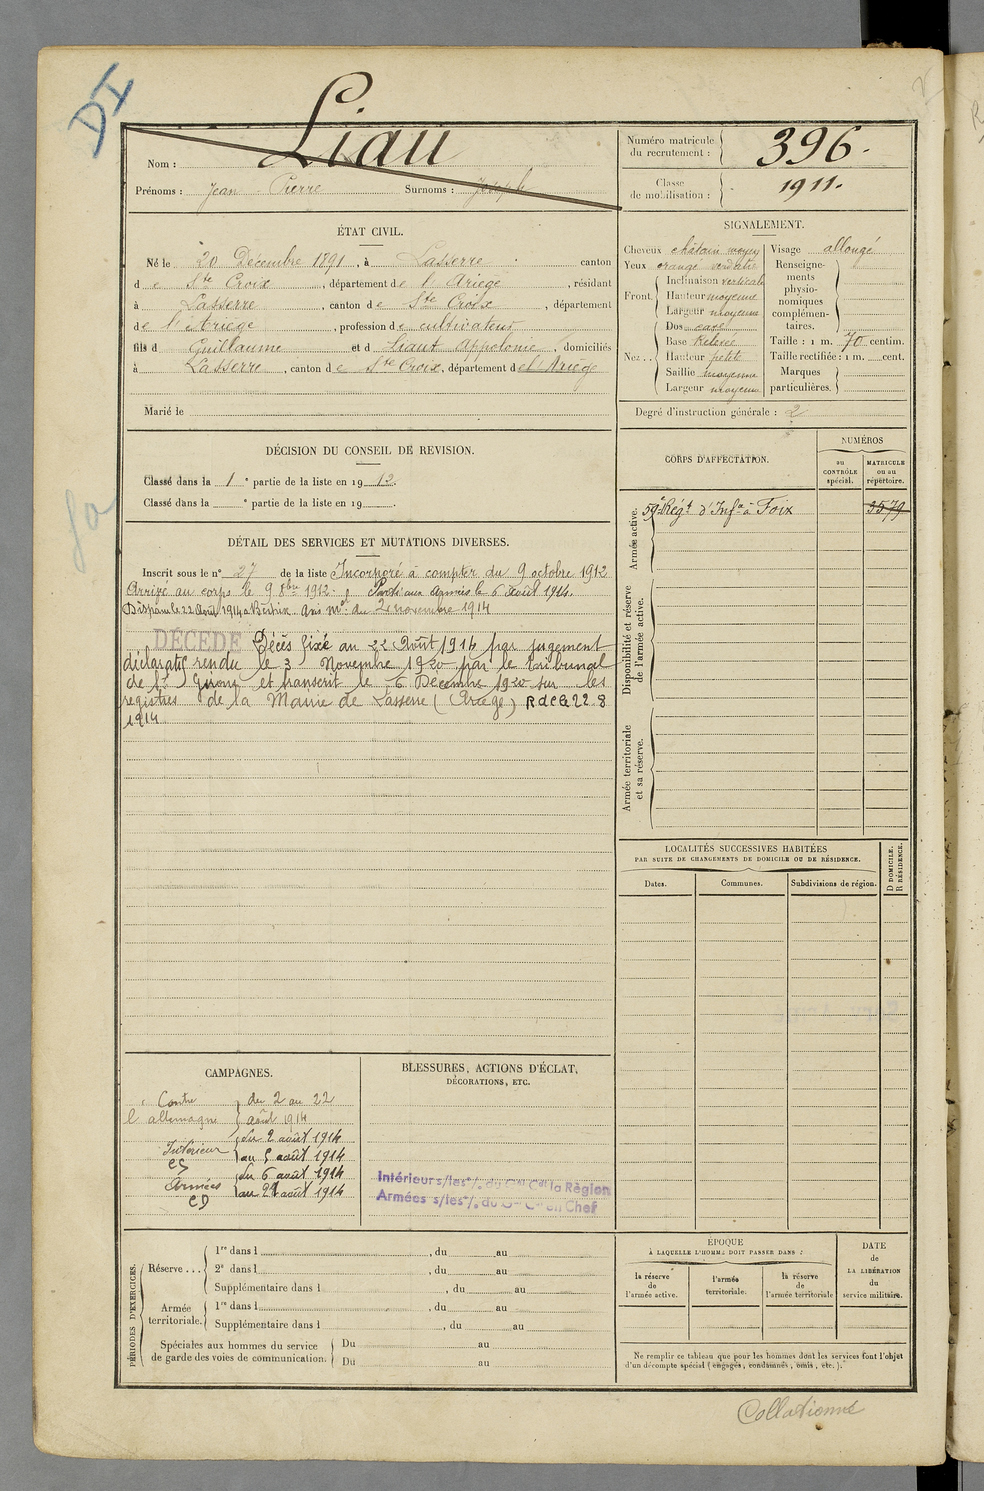 DI
Liau
Nom :
Prénoms : Jean Pierre Surnoms : Joseph
Numéro matricule du recrutement : 396.
Classe de mobilisation : 1911.
ÉTAT CIVIL.
Né le 20 Décembre 1891, à Lasserre canton
de Ste Croix, département de l'Ariège, résidant
à Lasserre, canton de Ste Croix, département
de l'Ariège, profession de cultivateur
fils d Guillaume et d Liaut Appolonie, domiciliés
à Lasserre, canton de Ste Croix, département de l'Ariège
Marié le
SIGNALEMENT.
Cheveux châtain moyen
Yeux orangé verdâtre
Front. Inclinaison verticale
Hauteur moyenne
Largeur moyenne
Nez. Dos cave
Base Relevée
Hauteur petite
Saillie moyenne
Largeur moyenne
Visage allongé
Renseignements physionomiques complémentaires.
Taille : 1 m. 70 centim.
Taille rectifiée : 1 m. cent.
Marques particulières.
Degré d'instruction générale : 2
DÉCISION DU CONSEIL DE REVISION.
Classé dans la 1e partie de la liste en 1912.
Classé dans la e partie de la liste en 19
CORPS D'AFFECTATION.
NUMÉROS
au CONTRÔLE spécial.
MATRICULE ou au répertoire.
Armée active.
59e Régt d'Infie à Foix 3579
Disponibilité et réserve de l'armée active.
Armée territoriale et sa réserve.
DÉTAIL DES SERVICES ET MUTATIONS DIVERSES.
Inscrit sous le n° 27 de la liste Incorporé à compter du 9 octobre 1912
Arrivé au corps le 9 8bre 1912. Parti aux armées le 6 août 1914.
Disparu le 22 Août 1914 à Bertrix. Avis mel du 24 novembre 1914
DÉCÉDÉ Décès fixé au 22 Août 1914 par jugement
déclaratif rendu le 3 Novembre 1920 par le Tribunal
de St Girons et transcrit le 6 Décembre 1920 sur les
registres de la Mairie de Lasserre (Ariège) R d C le 22 8
1914
LOCALITÉS SUCCESSIVES HABITÉES
PAR SUITE DE CHANGEMENTS DE DOMICILE OU DE RÉSIDENCE.
Dates. Communes. Subdivisions de région.
D DOMICILE.
R RÉSIDENCE.
CAMPAGNES.
Contre l'allemagne du 2 au 22 août 1914
Intérieur CS du 2 août 1914 au 5 août 1914
Armées CD du 6 août 1914 au 21 août 1914
BLESSURES, ACTIONS D'ÉCLAT,
DÉCORATIONS, ETC.
Intérieur s/les o/. du Gal Ct la Région
Armées s/les o/. du Gal Ct en Chef
PÉRIODES D'EXERCICES.
Réserve . . .
1re dans l , du au
2e dans l , du au
Supplémentaire dans l , du au
Armée territoriale.
1re dans l , du au
Supplémentaire dans l , du au
Spéciales aux hommes du service de garde des voies de communication.
Du au
Du au
ÉPOQUE
À LAQUELLE L'HOMME DOIT PASSER DANS :
la réserve de l'armée active.
l'armée territoriale.
la réserve de l'armée territoriale
DATE de LA LIBÉRATION du service militaire.
Ne remplir ce tableau que pour les hommes dont les services font l'objet
d'un décompte spécial (engagés, condamnés, omis, etc.).
Collationné